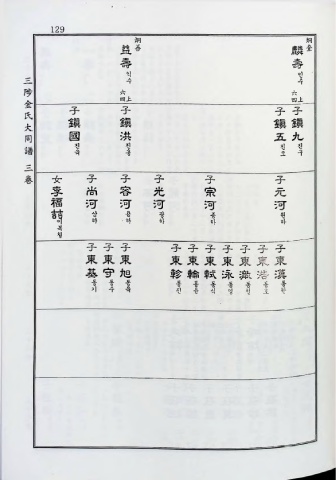 129
三陟金氏大同譜 三卷
洞奎
麟壽 인수
六四 上
洞善
益壽 익수
六四 上
子 鎭九 진구
子 鎭五 진오
子 鎭洪 진홍
子 鎭國 진국
子 元河 원하
子 宗河 종하
子 光河 광하
子 容河 용하
子 尚河 상하
女 李福喆 이복철
子 東漢 동한
子 東浩 동호
子 東瀷 동익
子 東泳 동영
子 東軾 동식
子 東輪 동윤
子 東軫 동진
子 東旭 동욱
子 東守 동수
子 東基 동기